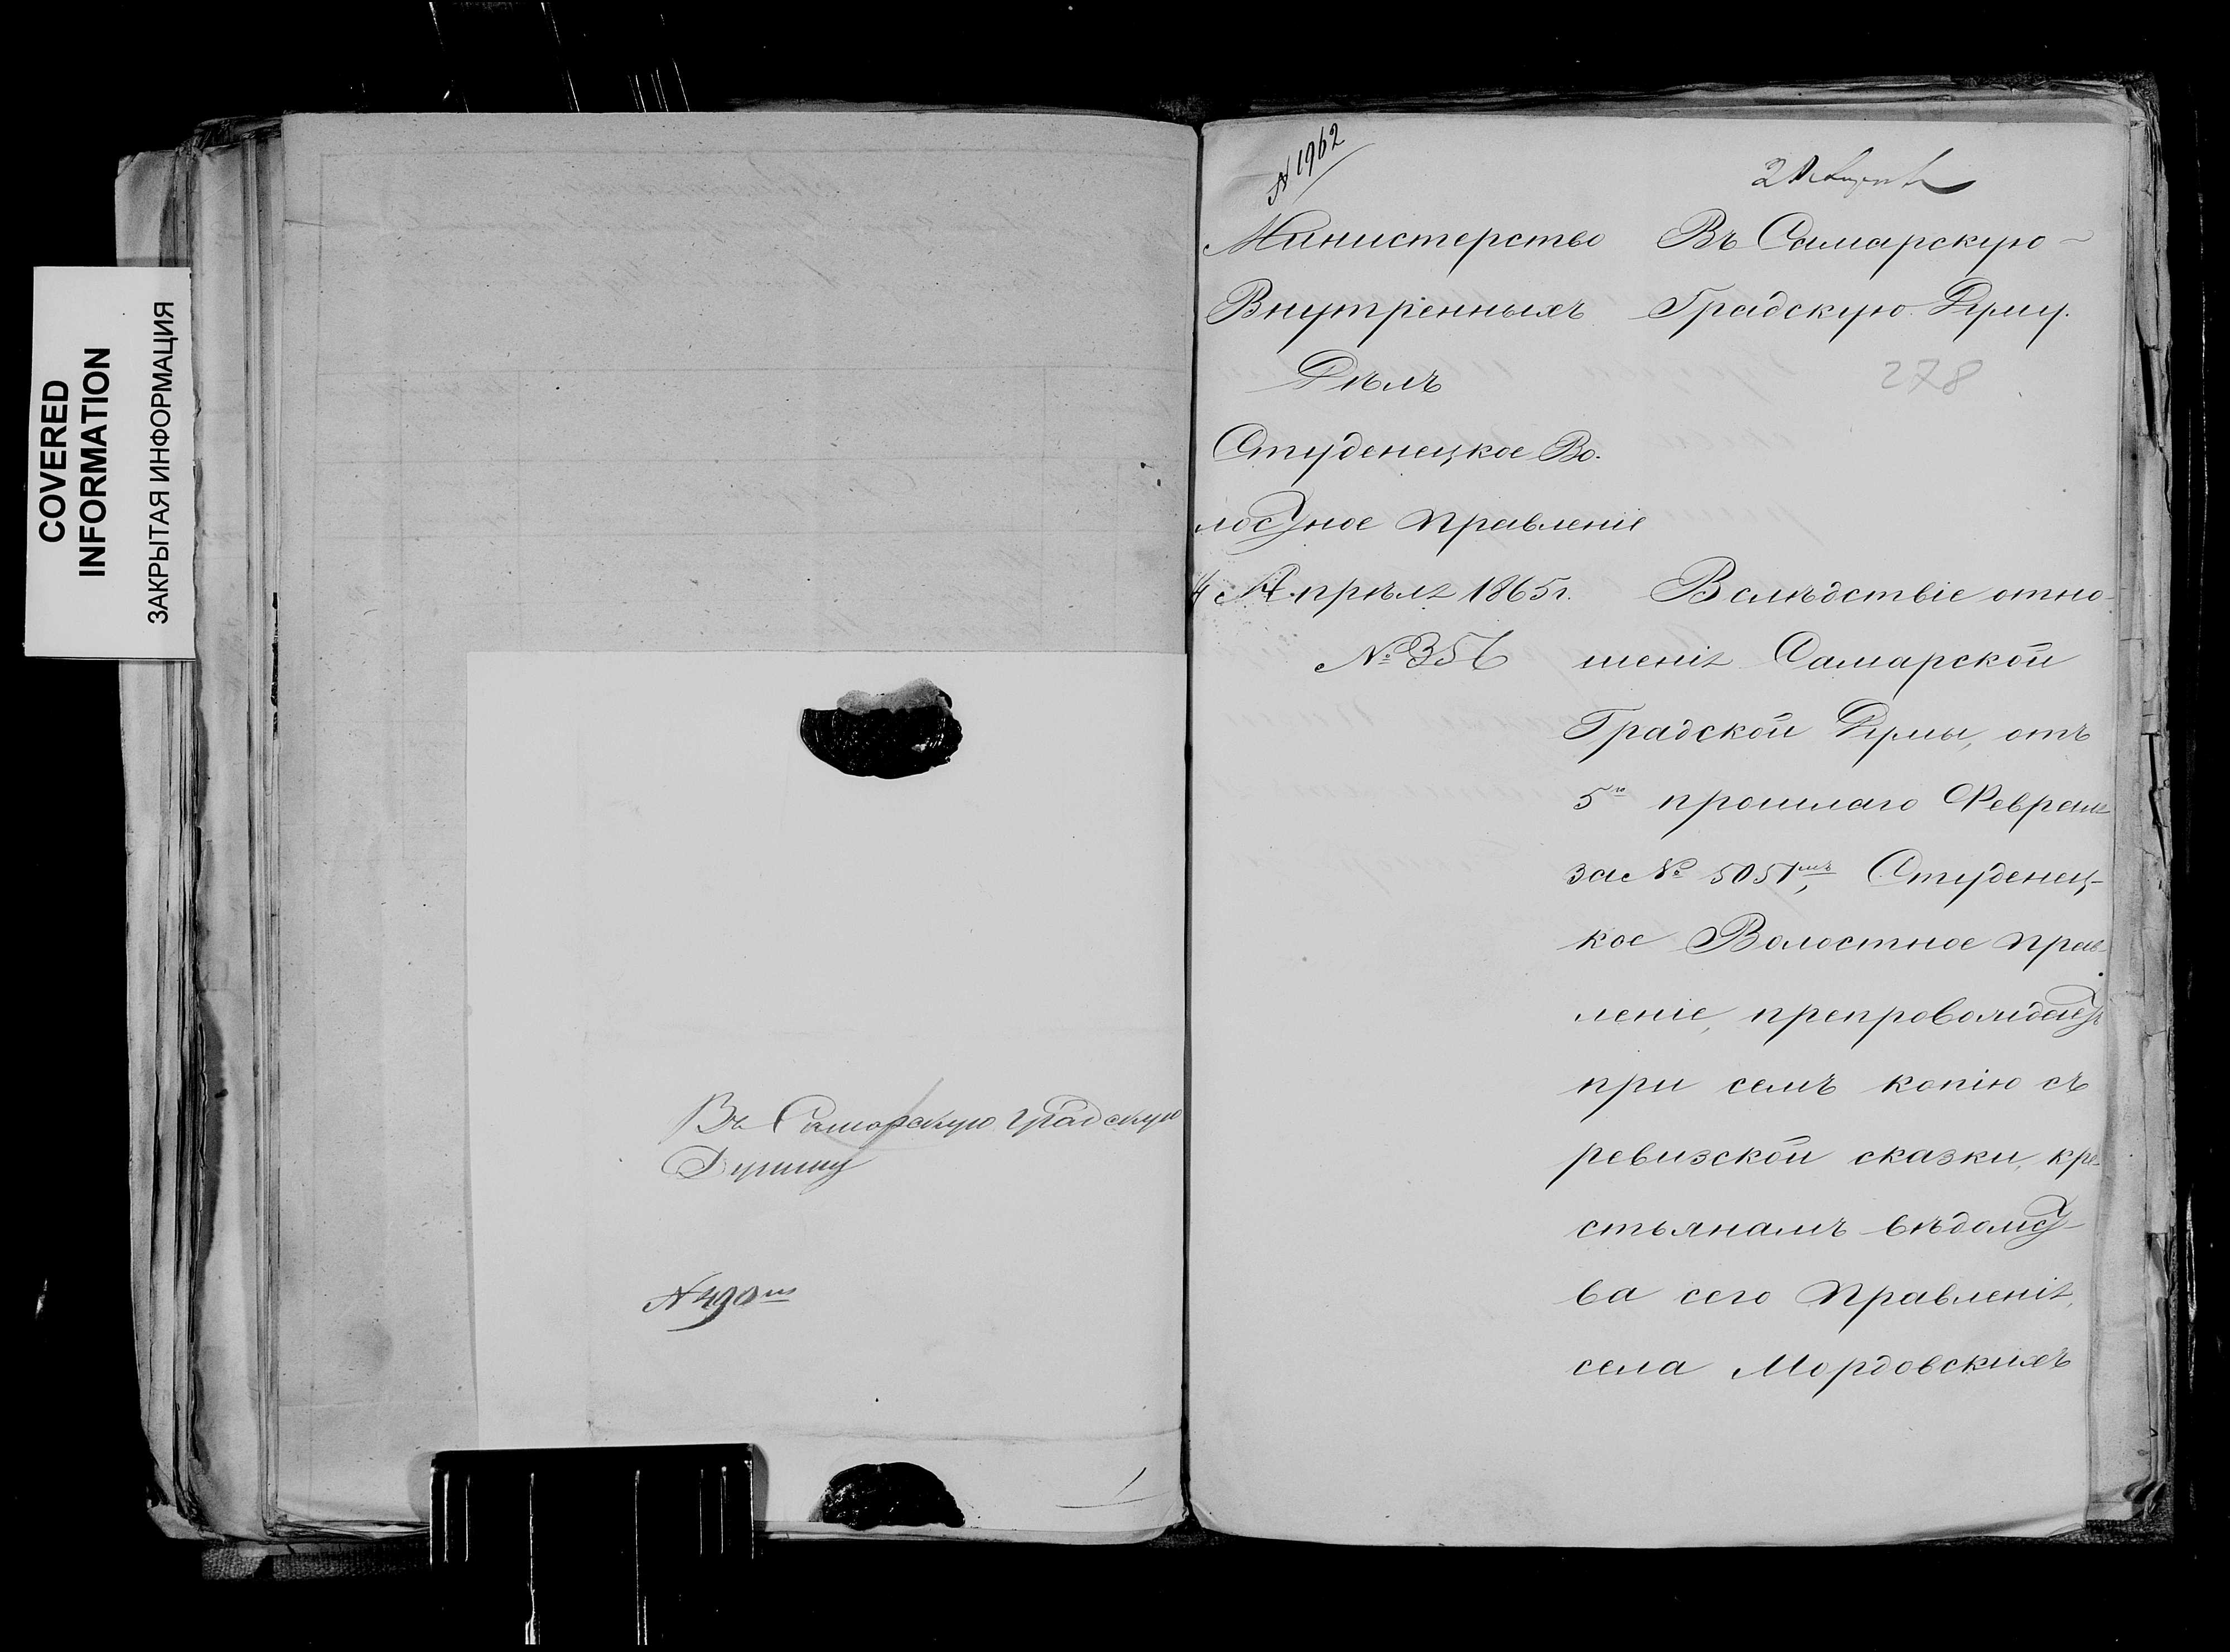 COVERED
INFORMATION
ЗАКРЫТАЯ ИНФОРМАЦИЯ
Въ Самарскую градскую
Думму
N 490
N 1962
Министерство
Внутренныхъ
Дѣлъ
Студенецкое Во-
лостное Правленіе
4 Апрѣля 1865 г.
№ 356
Въ Самарскую
Градскую Думу.
278
Вслѣдствіе отно-
шенія Самарской
Градской Думы, отъ
5го прошлаго Февраля
за № 5051мъ, Студенец-
кое Волостное Прав-
леніе, препровождаетъ
при семъ копію съ
ревизской сказки, кре-
стьянамъ вѣдомст-
ва сего Правленія,
села Мордовскихъ